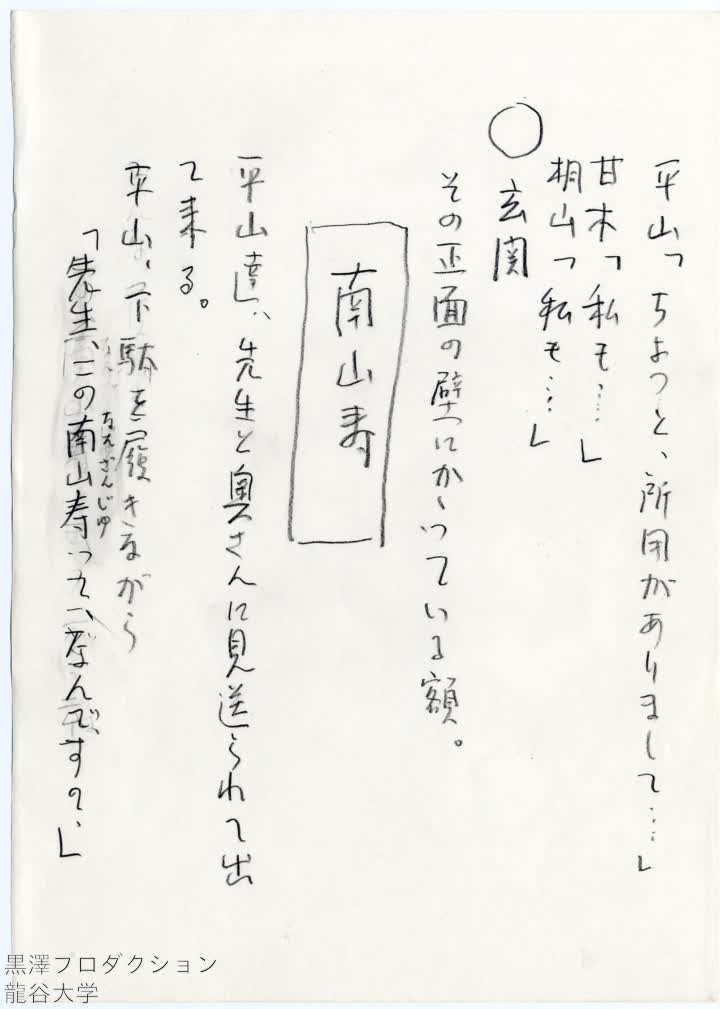 平山「ちょっと、所用がありまして…」
甘木「私も…」
桐山「私も…」
○玄関
その正面の壁にかゝっている額。
南山寿
平山達、先生と奥さんに見送られて出
て来る。
平山、下駄を履きながら
「先生、この南山寿って、なんですの、」
なんざんじゆ
黒澤プロダクション
龍谷大学